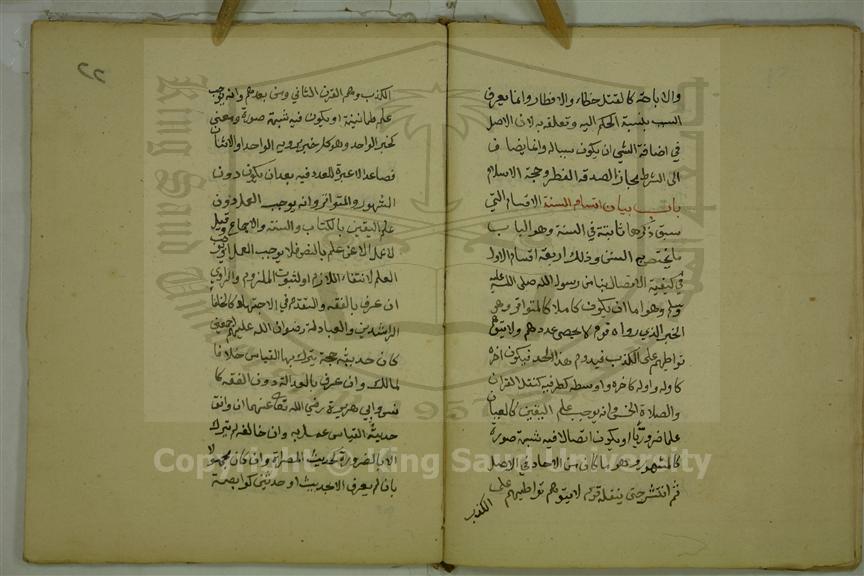 والاباحة كالقتل خطاء والافطار وانما يعرف
السبب بنسبة الحكم اليه وتعلقه به لان الاصل
في اضافة الشي ان يكون سببا له وانما يضاف
الى الشرط مجازا كصدقة الفطر وحجة الاسلام
باب بيان اقسام السنة الاقسام التي
سبق ذكرها ثابتة في السنة وهو الباب
ما يختص به السنن وذلك اربعة اقسام الاول
في كيفية الاتصال بنا من رسول الله صلى الله عليه
وسلم وهو اما ان يكون كاملا كالمتواتر وهو
الخبر الذي رواه قوم لا يحصى عددهم ولا يتوهم
تواطئهم على الكذب فيدوم هذا الحد فيكون اخره
كاوله واوله كاخره واوسطه كطرفيه كنقل القران
والصلاة الخمس وانه يوجب علم اليقين كالعيان
علما ضروريا او يكون اتصالا فيه شبهة صورة
كالمشهور وهو ما كان من الاحاد في الاصل
ثم انتشر حتى ينقله قوم لا يتوهم تواطيهم على
الكذب
٢٢
الكذب وهم القرن الثاني ومن بعدهم وانه يوجب
علم طمانينة او يكون فيه شبهة صورة ومعنى
كخبر الواحد وهو كل خبر يرويه الواحد او الاثنان
فصاعدا لا عبرة للعدد فيه بعد ان يكون دون
المشهور والمتواتر وانه يوجب العمل دون
علم اليقين بالكتاب والسنة والاجماع وقيل
لا عمل الا عن علم بالنص فلا يوجب العمل او يوجب
العلم لانتفاء اللازم او لثبوت الملزوم والراوي
ان عرف بالفقه والتقدم في الاجتهاد كالخلفا
الراشدين والعبادلة رضوان الله عليهم اجمعين
كان حديثه حجة يترك بها القياس خلافا
لمالك وان عرف بالعدالة دون الفقه كا
نس وابي هريرة رضي الله تعالى عنهما ان وافق
حديثه القياس عمل به وان خالفه لم يترك
الا بالضرورة كحديث المصراة وان كان مجهولا
بان لم يعرف الا بحديث او حديثين كوابصة
King Saud University
1957
Copyright © King Saud University